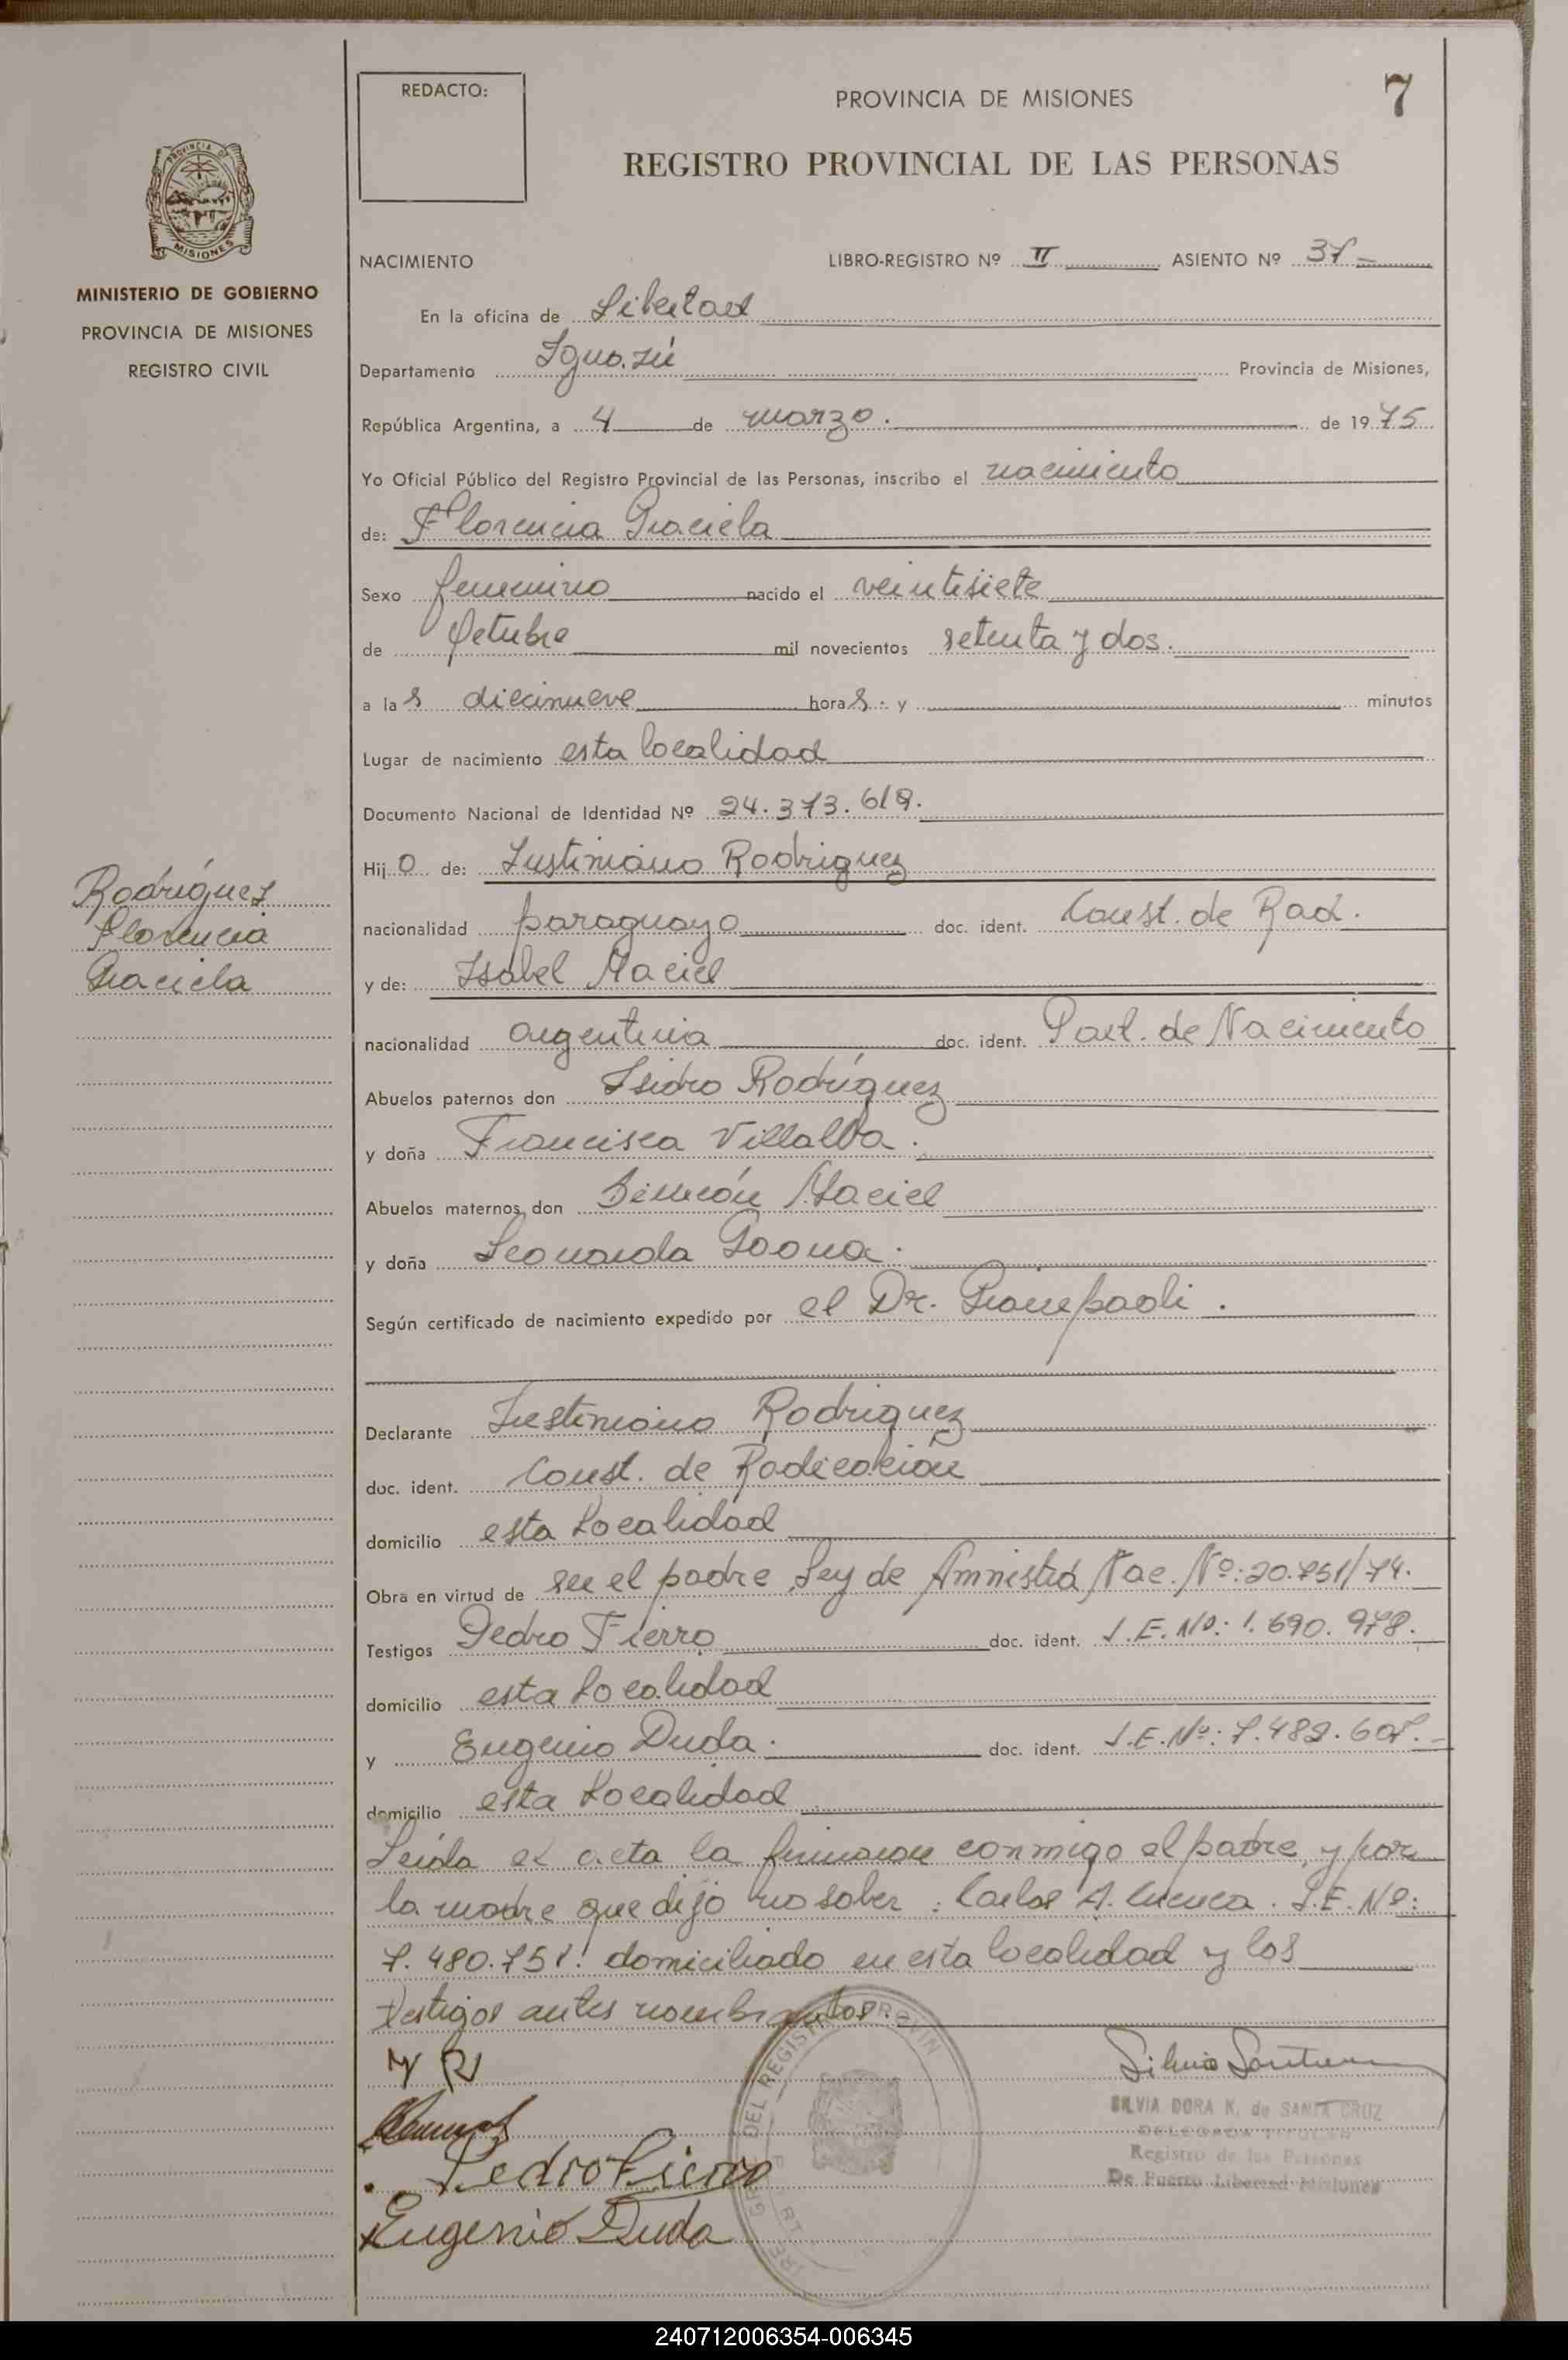 REDACTO:
PROVINCIA DE MISIONES
7
REGISTRO PROVINCIAL DE LAS PERSONAS
PROVINCIA DE
MISIONES
MINISTERIO DE GOBIERNO
PROVINCIA DE MISIONES
REGISTRO CIVIL
NACIMIENTO LIBRO-REGISTRO Nº II ASIENTO Nº 37
En la oficina de Libertad
Departamento Iguazú Provincia de Misiones,
República Argentina, a 4 de marzo. de 1975
Yo Oficial Público del Registro Provincial de las Personas, inscribo el nacimiento
de: Florencia Graciela
Sexo femenino nacido el veintisiete
de Octubre mil novecientos setenta y dos.
a las diecinueve horas. y minutos
Lugar de nacimiento esta localidad
Documento Nacional de Identidad Nº 24.373.619.
Hijo de: Justiniano Rodriguez
Rodríguez
Florencia
Graciela
nacionalidad paraguayo doc. ident. Const. de Rad.
y de: Isabel Maciel
nacionalidad argentina doc. ident. Part. de Nacimiento
Abuelos paternos don Isidro Rodríguez
y doña Francisca Villalba.
Abuelos maternos don Simeón Maciel
y doña Leonarda Gaona.
Según certificado de nacimiento expedido por el Dr. Giampaoli.
Declarante Justiniano Rodriguez
doc. ident. Const. de Radicación
domicilio esta Localidad
Obra en virtud de ser el padre Ley de Amnistía Nac. Nº: 20.751/74.
Testigos Pedro Fierro doc. ident. L.E. Nº: 1.690.978.
domicilio esta Localidad
y Eugenio Duda. doc. ident. L.E. Nº: 7.482.607.-
domicilio esta Localidad
Leída el acta la firmaron conmigo el padre, y por
la madre que dijo no saber: Carlos A. Cuenca. L.E. Nº:
7.480.751! domiciliado en esta localidad y los
testigos antes nombrados.
Pedro Fierro
Eugenio Duda
SILVIA DORA K. de SANTA CRUZ
DELEGADA TITULAR
Registro de las Personas
De Puerto Libertad Misiones
DEL REGISTRO PROVIN
240712006354-006345